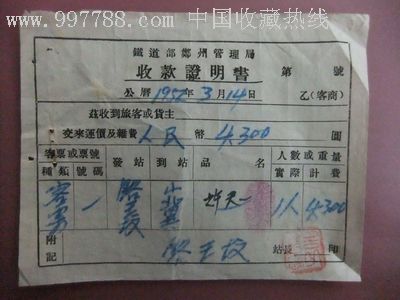 www.997788.com 中国收藏热线
鐵道部鄭州管理局
收款證明書 第 號
公曆1952年3月14日 乙(客商)
茲收到旅客或貨主
交來運價及雜費人民幣4300圓
客票或票號 發站 到站 品名 人數或重量
種類 號碼 實際 計費
客票 一 1人 4300
附記 站長 印